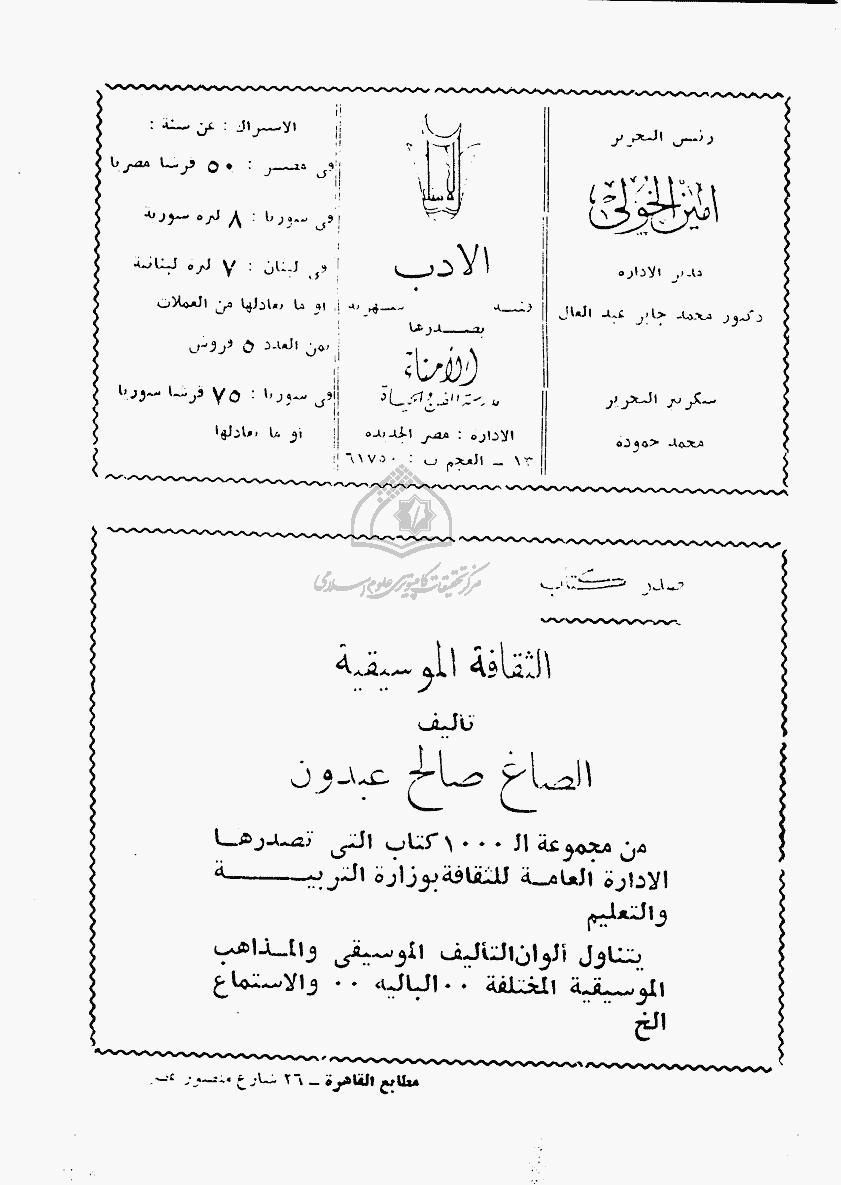 رئيس التحرير
أمين الخولى
مدير الادارة
دكتور محمد جابر عبد العال
سكرتير التحرير
محمد حمودة
الأدب
فنية شهرية
يصدرها
الأمناء
مدرسة الفن والحياة
الادارة : مصر الجديدة
١٣ ـ العجم ت : ٦١٧٥٠
الاشتراك : عن سنة :
فى مصر : ٥٠ قرشا مصريا
فى سوريا : ٨ ليرة سورية
فى لبنان : ٧ ليرة لبنانية
او ما يعادلها من العملات
ثمن العدد ٥ قروش
فى سوريا : ٧٥ قرشا سوريا
أو ما يعادلها
مركز تحقيقات كامپيوترى علوم اسلامى
صدر كتاب
الثقافة الموسيقية
تأليف
الصاغ صالح عبدون
من مجموعة الـ ١٠٠٠ كتاب التى تصدرها
الادارة العامة للثقافة بوزارة التربيــــــة
والتعليم
يتناول ألوان التأليف الموسيقى والمـذاهب
الموسيقية المختلفة ٠٠ الباليه ٠٠ والاستماع
الخ
مطابع القاهرة ـ ٢٦ شارع منصور